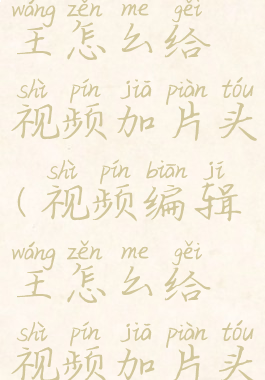 wáng zěn me gěi
王怎么给
shì pín jiā piàn tóu
视频加片头
shì pín biān jí
(视频编辑
wáng zěn me gěi
王怎么给
shì pín jiā piàn tóu
视频加片头